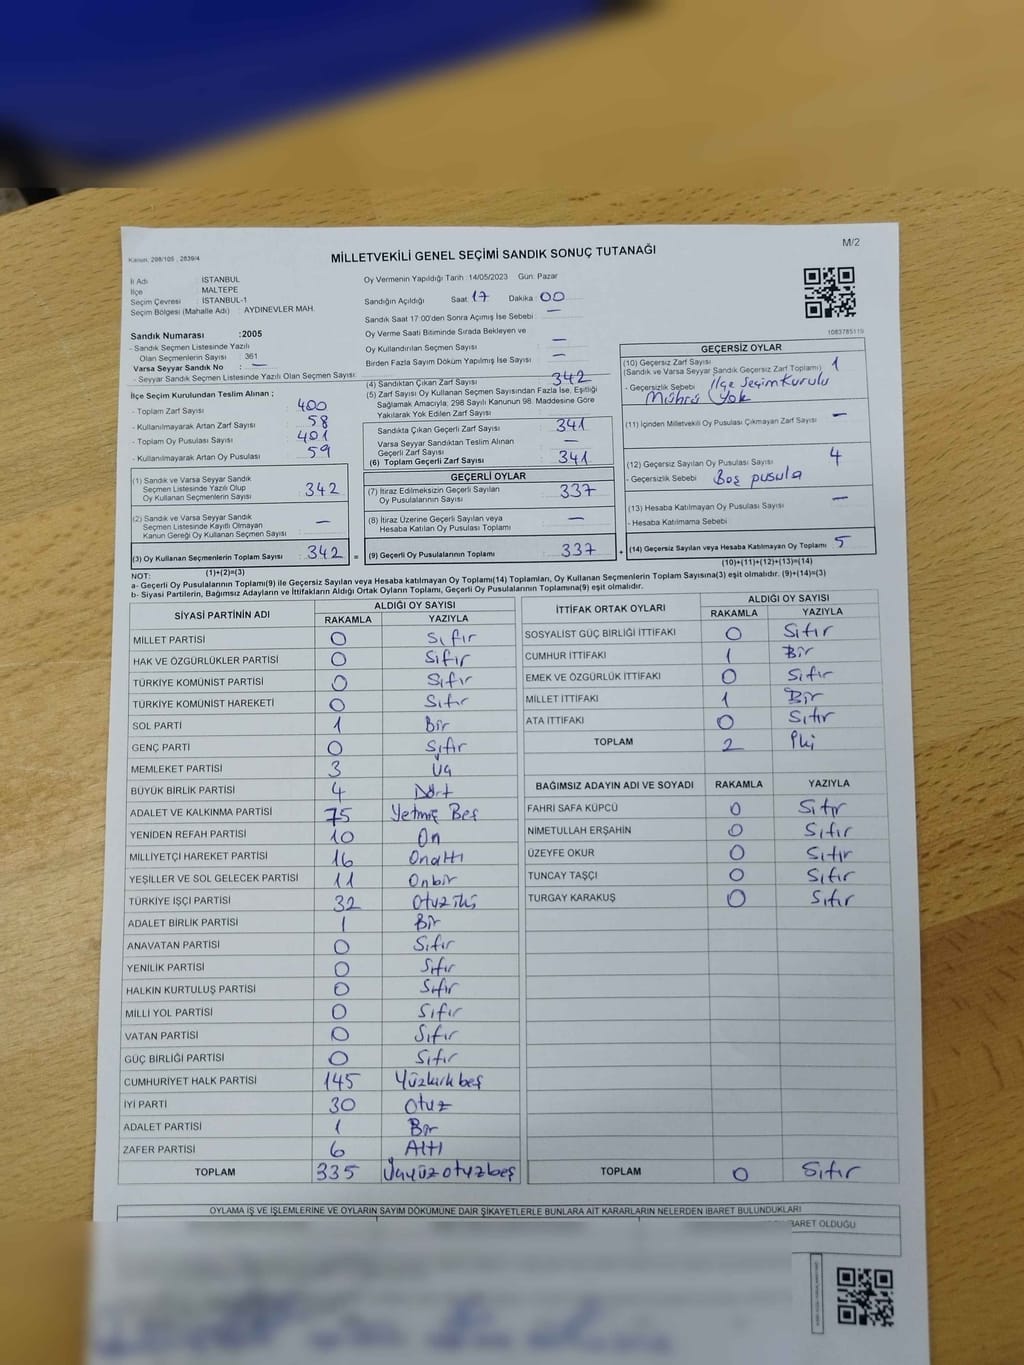 Kanun, 298/105 , 2839/4
MİLLETVEKİLİ GENEL SEÇİMİ SANDIK SONUÇ TUTANAĞI
M/2
İl Adı İSTANBUL
İlçe MALTEPE
Seçim Çevresi : İSTANBUL-1
Seçim Bölgesi (Mahalle Adı) : AYDINEVLER MAH.
Oy Vermenin Yapıldığı Tarih :14/05/2023 Gün: Pazar
Sandığın Açıldığı Saat 17 Dakika 00
Sandık Saat 17:00'den Sonra Açımış İse Sebebi : —
Oy Verme Saati Bitiminde Sırada Bekleyen ve
Oy Kullandırılan Seçmen Sayısı —
Birden Fazla Sayım Döküm Yapılmış İse Sayısı —
1083785119
Sandık Numarası :2005
- Sandık Seçmen Listesinde Yazılı
Olan Seçmenlerin Sayısı : 361
Varsa Seyyar Sandık No : —
- Seyyar Sandık Seçmen Listesinde Yazılı Olan Seçmen Sayısı:
İlçe Seçim Kurulundan Teslim Alınan ;
- Toplam Zarf Sayısı : 400
- Kullanılmayarak Artan Zarf Sayısı : 58
- Toplam Oy Pusulası Sayısı : 401
- Kullanılmayarak Artan Oy Pusulası : 59
(1) Sandık ve Varsa Seyyar Sandık
Seçmen Listesinde Yazılı Olup
Oy Kullanan Seçmenlerin Sayısı : 342
(2) Sandık ve Varsa Seyyar Sandık
Seçmen Listesinde Kayıtlı Olmayan
Kanun Gereği Oy Kullanan Seçmen Sayısı : —
(3) Oy Kullanan Seçmenlerin Toplam Sayısı : 342 =
(1)+(2)=(3)
(4) Sandıktan Çıkan Zarf Sayısı : 342
(5) Zarf Sayısı Oy Kullanan Seçmen Sayısından Fazla İse, Eşitliği
Sağlamak Amacıyla; 298 Sayılı Kanunun 98. Maddesine Göre
Yakılarak Yok Edilen Zarf Sayısı :
Sandıkta Çıkan Geçerli Zarf Sayısı : 341
Varsa Seyyar Sandıktan Teslim Alınan
Geçerli Zarf Sayısı : —
(6) Toplam Geçerli Zarf Sayısı : 341
GEÇERLİ OYLAR
(7) İtiraz Edilmeksizin Geçerli Sayılan
Oy Pusulalarının Sayısı : 337
(8) İtiraz Üzerine Geçerli Sayılan veya
Hesaba Katılan Oy Pusulası Toplamı : —
(9) Geçerli Oy Pusulalarının Toplamı : 337 +
GEÇERSİZ OYLAR
(10) Geçersiz Zarf Sayısı
(Sandık ve Varsa Seyyar Sandık Geçersiz Zarf Toplamı) : 1
- Geçersizlik Sebebi : İlçe Seçim Kurulu
Mührü Yok
(11) İçinden Milletvekili Oy Pusulası Çıkmayan Zarf Sayısı : —
(12) Geçersiz Sayılan Oy Pusulası Sayısı : 4
- Geçersizlik Sebebi : Boş pusula
(13) Hesaba Katılmayan Oy Pusulası Sayısı : —
- Hesaba Katılmama Sebebi :
(14) Geçersiz Sayılan veya Hesaba Katılmayan Oy Toplamı : 5
(10)+(11)+(12)+(13)=(14)
NOT:
a- Geçerli Oy Pusulalarının Toplamı(9) ile Geçersiz Sayılan veya Hesaba katılmayan Oy Toplamı(14) Toplamları, Oy Kullanan Seçmenlerin Toplam Sayısına(3) eşit olmalıdır. (9)+(14)=(3)
b- Siyasi Partilerin, Bağımsız Adayların ve İttifakların Aldığı Ortak Oyların Toplamı, Geçerli Oy Pusulalarının Toplamına(9) eşit olmalıdır.
SİYASİ PARTİNİN ADI ALDIĞI OY SAYISI
RAKAMLA YAZIYLA
MİLLET PARTİSİ 0 Sıfır
HAK VE ÖZGÜRLÜKLER PARTİSİ 0 Sıfır
TÜRKİYE KOMÜNİST PARTİSİ 0 Sıfır
TÜRKİYE KOMÜNİST HAREKETİ 0 Sıfır
SOL PARTİ 1 Bir
GENÇ PARTİ 0 Sıfır
MEMLEKET PARTİSİ 3 Üç
BÜYÜK BİRLİK PARTİSİ 4 Dört
ADALET VE KALKINMA PARTİSİ 75 Yetmiş Beş
YENİDEN REFAH PARTİSİ 10 On
MİLLİYETÇİ HAREKET PARTİSİ 16 Onaltı
YEŞİLLER VE SOL GELECEK PARTİSİ 11 Onbir
TÜRKİYE İŞÇİ PARTİSİ 32 Otuz iki
ADALET BİRLİK PARTİSİ 1 Bir
ANAVATAN PARTİSİ 0 Sıfır
YENİLİK PARTİSİ 0 Sıfır
HALKIN KURTULUŞ PARTİSİ 0 Sıfır
MİLLİ YOL PARTİSİ 0 Sıfır
VATAN PARTİSİ 0 Sıfır
GÜÇ BİRLİĞİ PARTİSİ 0 Sıfır
CUMHURİYET HALK PARTİSİ 145 Yüzkırkbeş
İYİ PARTİ 30 Otuz
ADALET PARTİSİ 1 Bir
ZAFER PARTİSİ 6 Altı
TOPLAM 335 Üçyüzotuzbeş
İTTİFAK ORTAK OYLARI ALDIĞI OY SAYISI
RAKAMLA YAZIYLA
SOSYALİST GÜÇ BİRLİĞİ İTTİFAKI 0 Sıfır
CUMHUR İTTİFAKI 1 Bir
EMEK VE ÖZGÜRLÜK İTTİFAKI 0 Sıfır
MİLLET İTTİFAKI 1 Bir
ATA İTTİFAKI 0 Sıfır
TOPLAM 2 İki
BAĞIMSIZ ADAYIN ADI VE SOYADI RAKAMLA YAZIYLA
FAHRİ SAFA KÜPCÜ 0 Sıfır
NİMETULLAH ERŞAHİN 0 Sıfır
ÜZEYFE OKUR 0 Sıfır
TUNCAY TAŞÇI 0 Sıfır
TURGAY KARAKUŞ 0 Sıfır
TOPLAM 0 Sıfır
OYLAMA İŞ VE İŞLEMLERİNE VE OYLARIN SAYIM DÖKÜMÜNE DAİR ŞİKAYETLERLE BUNLARA AİT KARARLARIN NELERDEN İBARET BULUNDUKLARI
BARET OLDUĞU